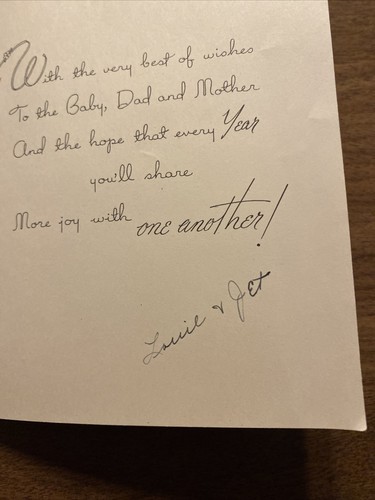 With the very best of wishes
To the Baby, Dad and Mother
And the hope that every Year
you'll share
More joy with one another!
Louie & Jet